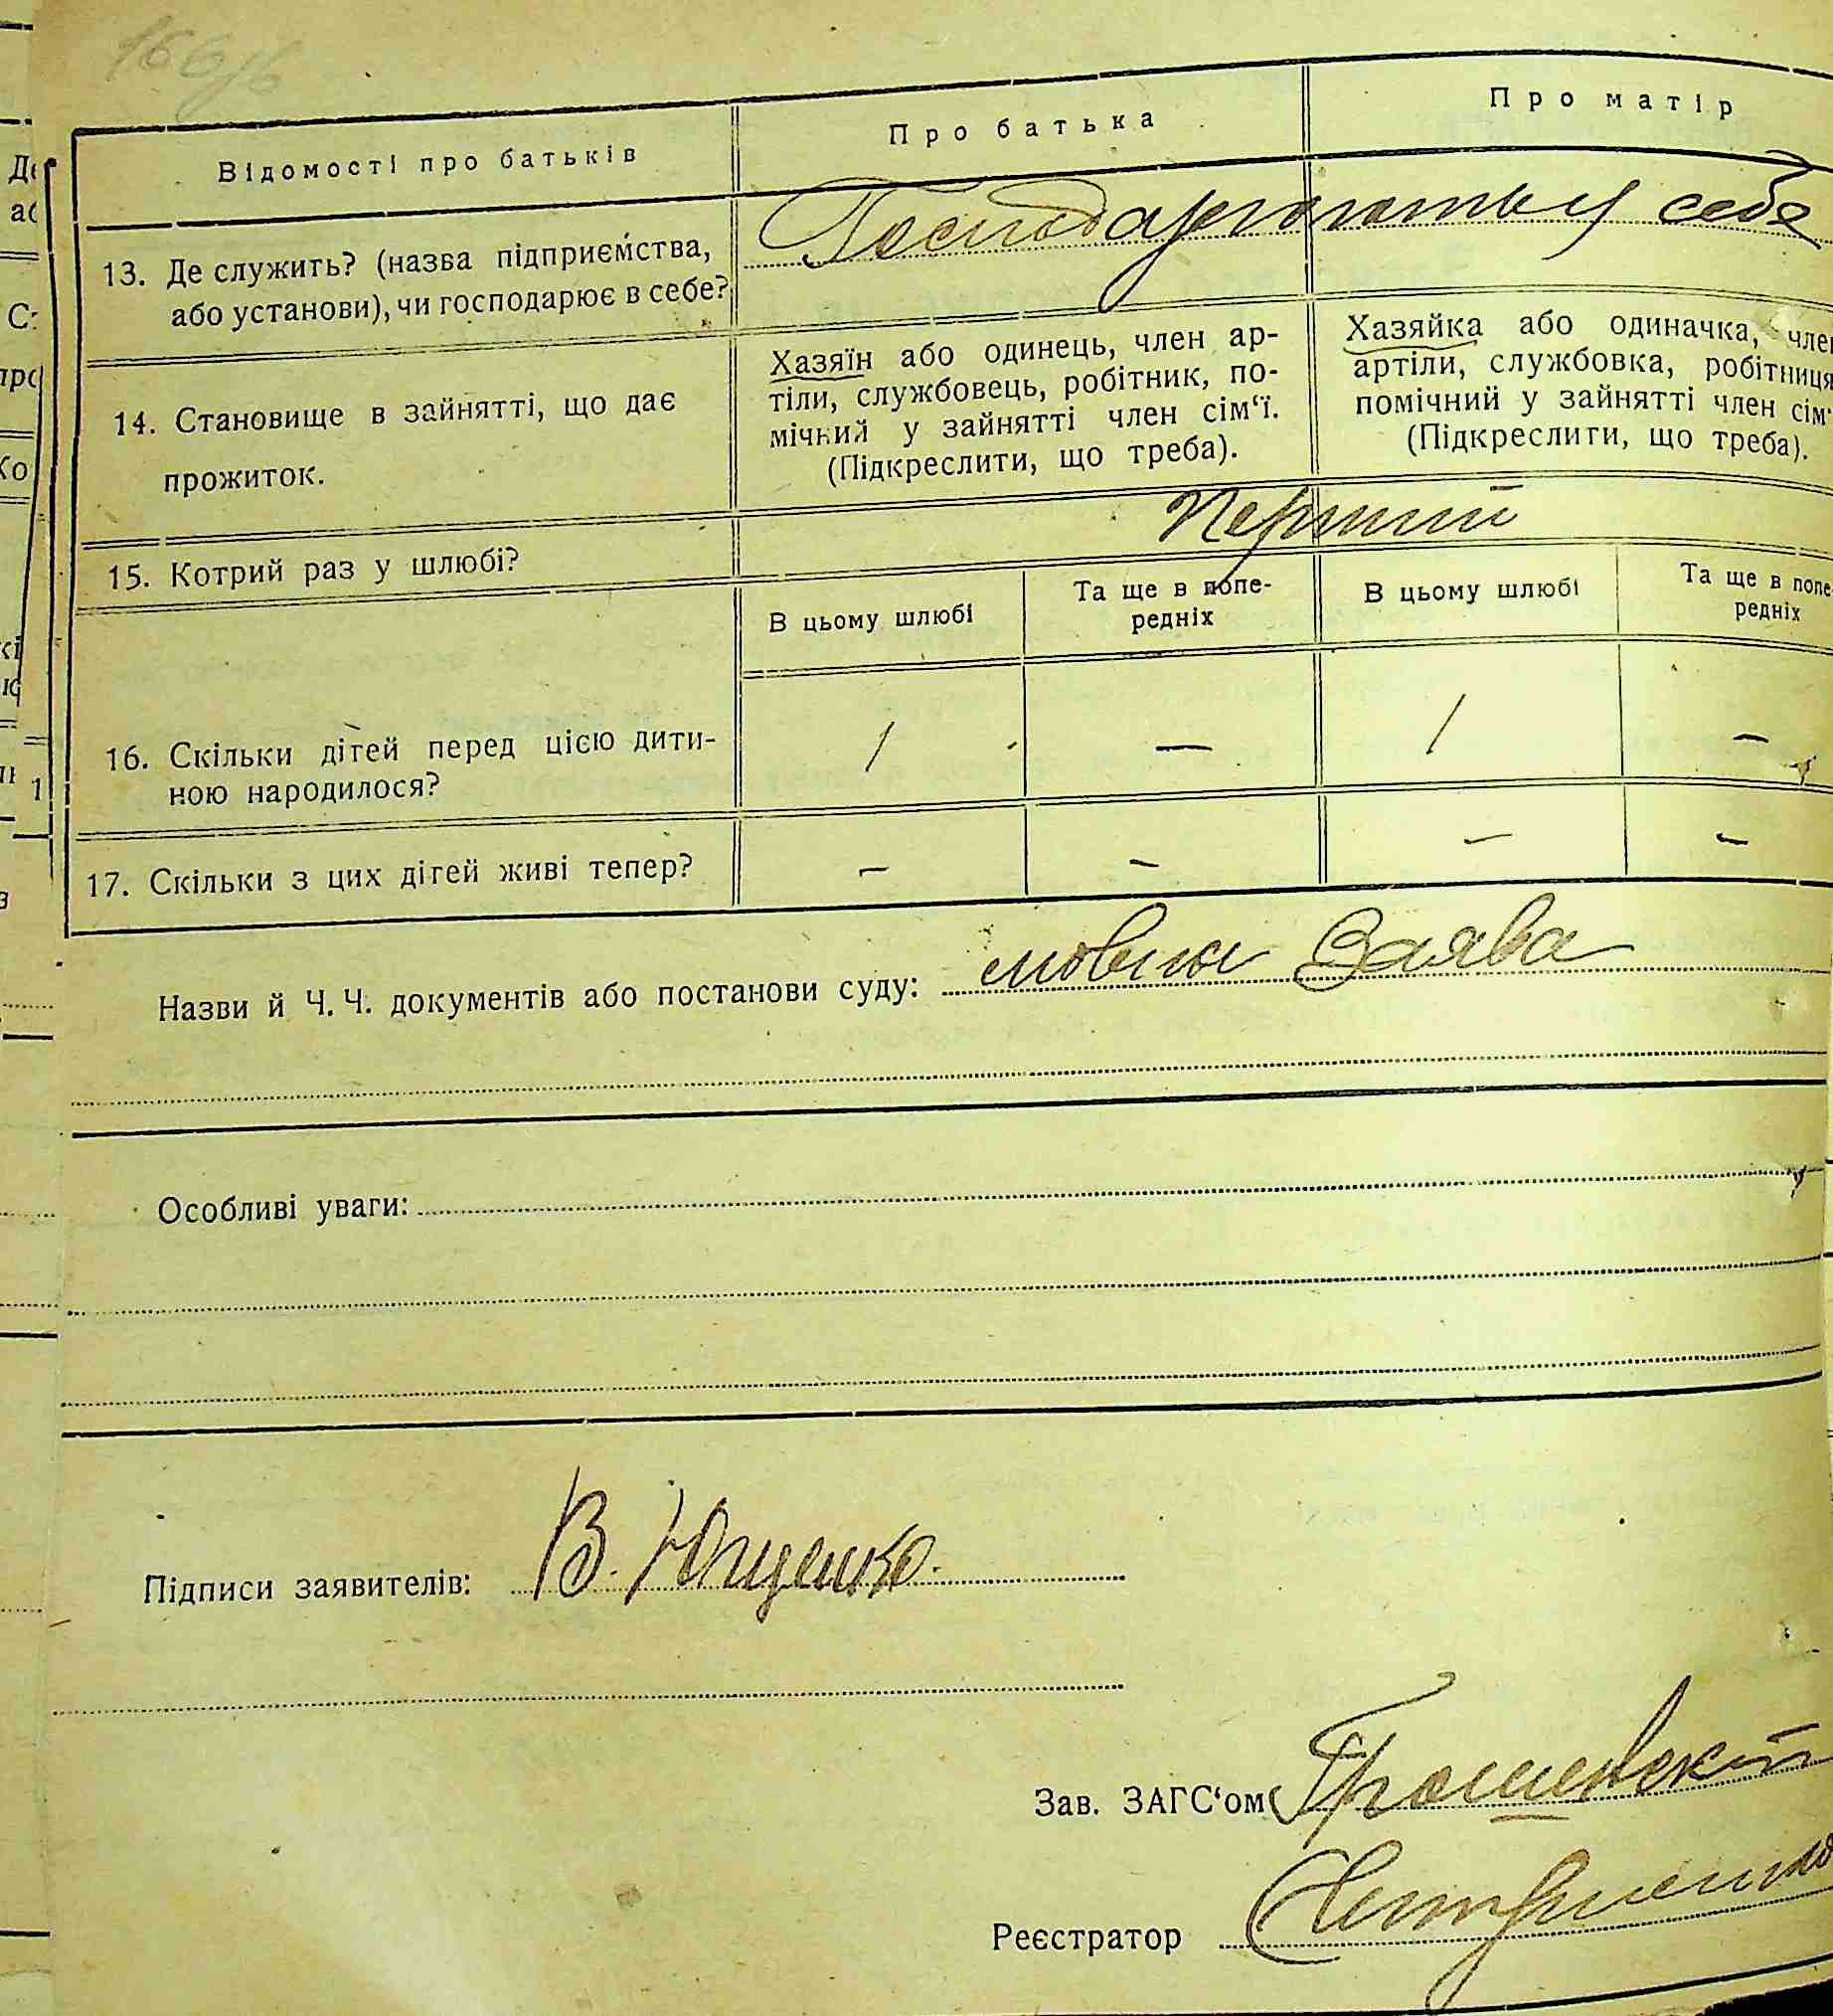 166/б
Відомості про батьків
Про батька
Про матір
13. Де служить? (назва підприємства,
або установи), чи господарює в себе?
Господарюють у себе
14. Становище в зайнятті, що дає
прожиток.
Хазяїн або одинець, член ар-
тіли, службовець, робітник, по-
мічний у зайнятті член сім‘ї.
(Підкреслити, що треба).
Хазяйка або одиначка, чле
артіли, службовка, робітниця
помічний у зайнятті член сім‘
(Підкреслити, що треба).
15. Котрий раз у шлюбі?
Перший
В цьому шлюбі
Та ще в попе-
редніх
В цьому шлюбі
Та ще в попе
редніх
16. Скільки дітей перед цією дити-
ною народилося?
/ — / —
17. Скільки з цих дітей живі тепер?
— — — —
Назви й Ч. Ч. документів або постанови суду: мовна Заява
Особливі уваги:
Підписи заявителів: В. Ющенко.
Зав. ЗАГС‘ом
Реєстратор